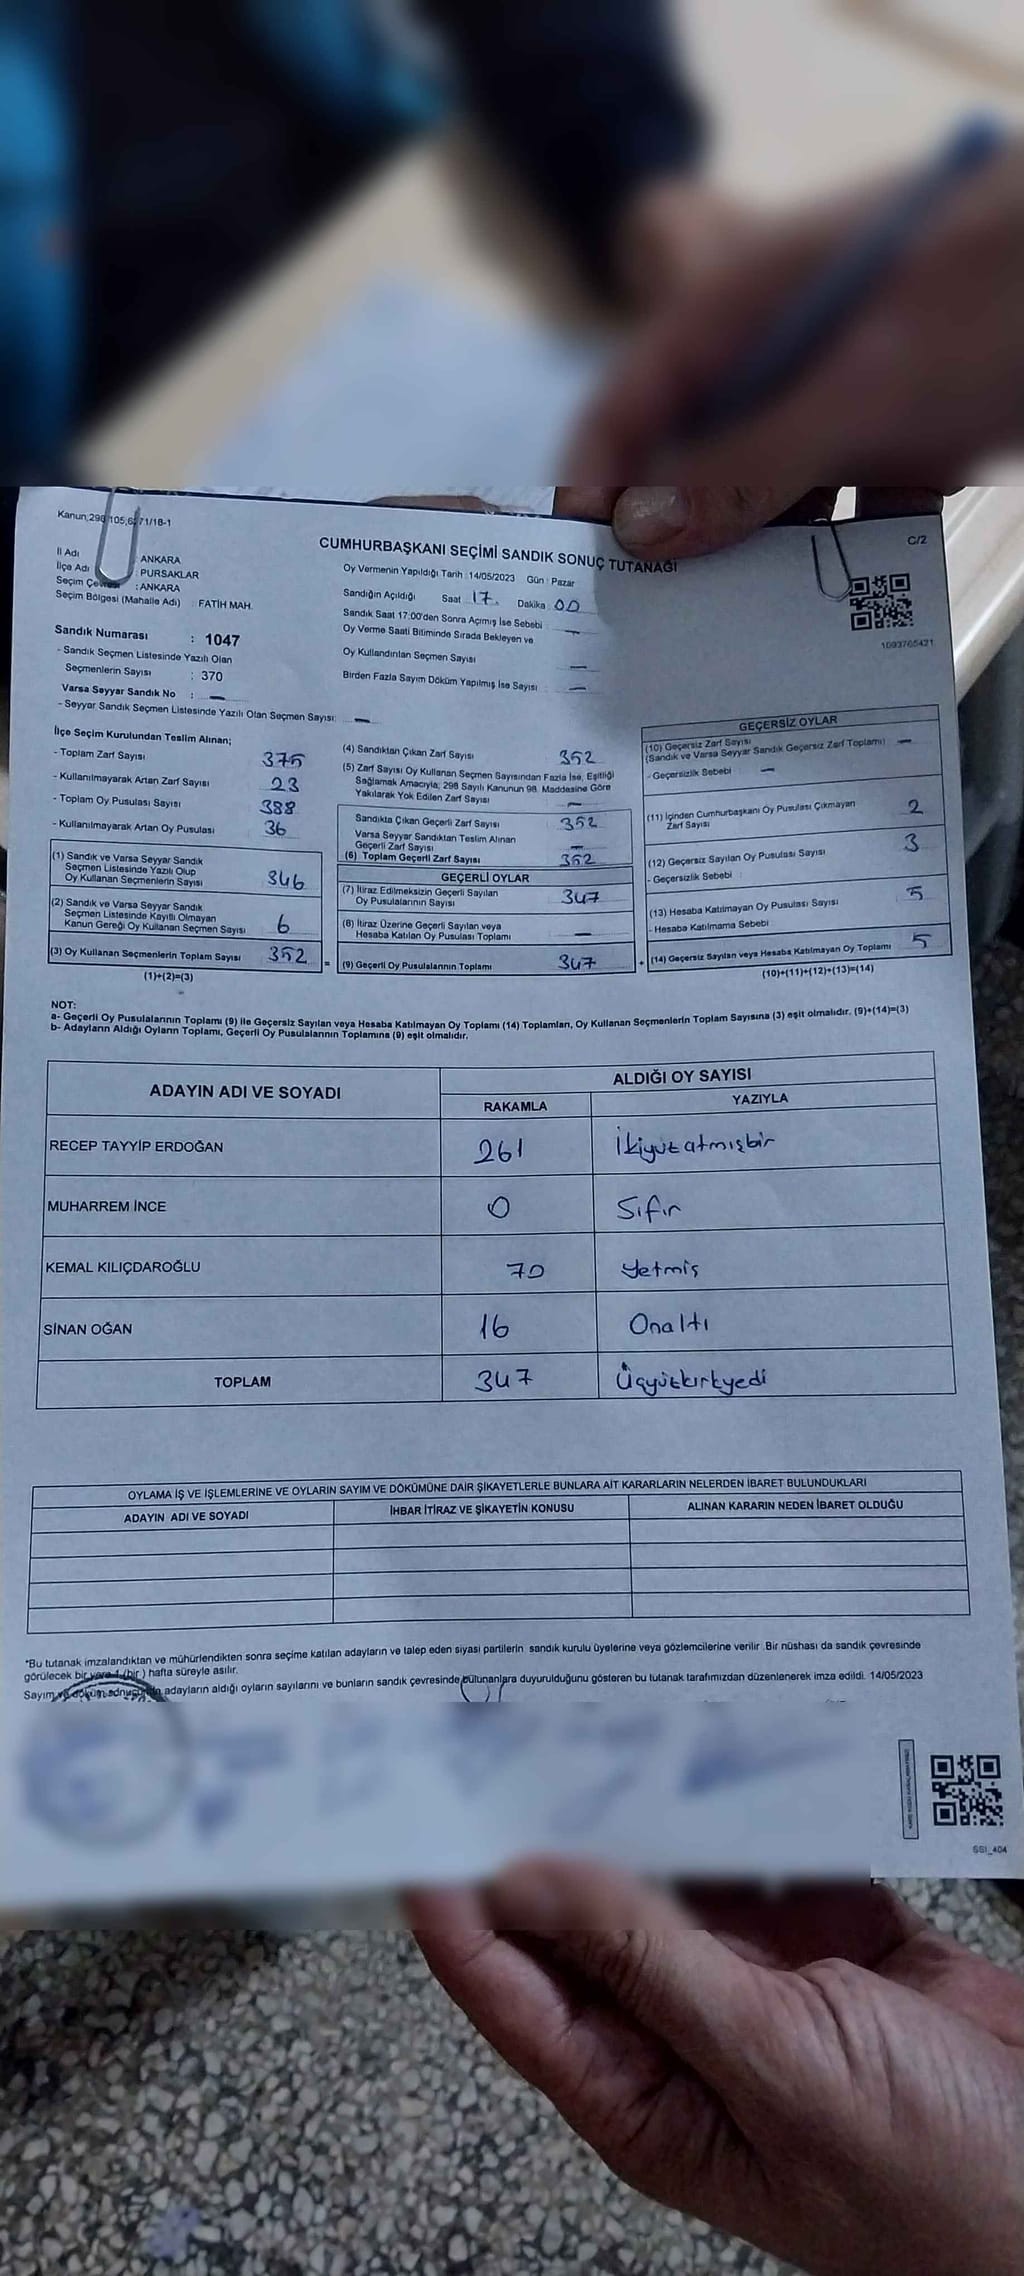 Kanun;298 105,6; 71/18-1
C/2
CUMHURBAŞKANI SEÇİMİ SANDIK SONUÇ TUTANAĞI
İl Adı : ANKARA
İlçe Adı : PURSAKLAR
Seçim Çevresi : ANKARA
Seçim Bölgesi (Mahalle Adı) : FATİH MAH.
Sandık Numarası : 1047
- Sandık Seçmen Listesinde Yazılı Olan
Seçmenlerin Sayısı : 370
Varsa Seyyar Sandık No : —
- Seyyar Sandık Seçmen Listesinde Yazılı Olan Seçmen Sayısı: —
Oy Vermenin Yapıldığı Tarih : 14/05/2023 Gün : Pazar
Sandığın Açıldığı Saat 17. Dakika 00
Sandık Saat 17:00'den Sonra Açımış İse Sebebi : —
Oy Verme Saati Bitiminde Sırada Bekleyen ve
Oy Kullandırılan Seçmen Sayısı —
Birden Fazla Sayım Döküm Yapılmış İse Sayısı : —
1093765421
İlçe Seçim Kurulundan Teslim Alınan;
- Toplam Zarf Sayısı 375
- Kullanılmayarak Artan Zarf Sayısı 23
- Toplam Oy Pusulası Sayısı 388
- Kullanılmayarak Artan Oy Pusulası 36
(1) Sandık ve Varsa Seyyar Sandık
Seçmen Listesinde Yazılı Olup
Oy Kullanan Seçmenlerin Sayısı 346
(2) Sandık ve Varsa Seyyar Sandık
Seçmen Listesinde Kayıtlı Olmayan
Kanun Gereği Oy Kullanan Seçmen Sayısı 6
(3) Oy Kullanan Seçmenlerin Toplam Sayısı 352
(1)+(2)=(3)
(4) Sandıktan Çıkan Zarf Sayısı 352
(5) Zarf Sayısı Oy Kullanan Seçmen Sayısından Fazla İse, Eşitliği
Sağlamak Amacıyla, 298 Sayılı Kanunun 98. Maddesine Göre
Yakılarak Yok Edilen Zarf Sayısı —
Sandıkta Çıkan Geçerli Zarf Sayısı 352
Varsa Seyyar Sandıktan Teslim Alınan
Geçerli Zarf Sayısı —
(6) Toplam Geçerli Zarf Sayısı 352
GEÇERLİ OYLAR
(7) İtiraz Edilmeksizin Geçerli Sayılan
Oy Pusulalarının Sayısı 347
(8) İtiraz Üzerine Geçerli Sayılan veya
Hesaba Katılan Oy Pusulası Toplamı —
= (9) Geçerli Oy Pusulalarının Toplamı 347 +
GEÇERSİZ OYLAR
(10) Geçersiz Zarf Sayısı
(Sandık ve Varsa Seyyar Sandık Geçersiz Zarf Toplamı) —
- Geçersizlik Sebebi : —
(11) İçinden Cumhurbaşkanı Oy Pusulası Çıkmayan
Zarf Sayısı 2
(12) Geçersiz Sayılan Oy Pusulası Sayısı 3
- Geçersizlik Sebebi :
(13) Hesaba Katılmayan Oy Pusulası Sayısı 5
- Hesaba Katılmama Sebebi :
(14) Geçersiz Sayılan veya Hesaba Katılmayan Oy Toplamı 5
(10)+(11)+(12)+(13)=(14)
NOT:
a- Geçerli Oy Pusulalarının Toplamı (9) ile Geçersiz Sayılan veya Hesaba Katılmayan Oy Toplamı (14) Toplamları, Oy Kullanan Seçmenlerin Toplam Sayısına (3) eşit olmalıdır. (9)+(14)=(3)
b- Adayların Aldığı Oyların Toplamı, Geçerli Oy Pusulalarının Toplamına (9) eşit olmalıdır.
ADAYIN ADI VE SOYADI
ALDIĞI OY SAYISI
RAKAMLA YAZIYLA
RECEP TAYYİP ERDOĞAN 261 İkiyüzatmışbir
MUHARREM İNCE 0 Sıfır
KEMAL KILIÇDAROĞLU 70 Yetmiş
SİNAN OĞAN 16 Onaltı
TOPLAM 347 Üçyüzkırkyedi
OYLAMA İŞ VE İŞLEMLERİNE VE OYLARIN SAYIM VE DÖKÜMÜNE DAİR ŞİKAYETLERLE BUNLARA AİT KARARLARIN NELERDEN İBARET BULUNDUKLARI
ADAYIN ADI VE SOYADI İHBAR İTİRAZ VE ŞİKAYETİN KONUSU ALINAN KARARIN NEDEN İBARET OLDUĞU
*Bu tutanak imzalandıktan ve mühürlendikten sonra seçime katılan adayların ve talep eden siyasi partilerin sandık kurulu üyelerine veya gözlemcilerine verilir. Bir nüshası da sandık çevresinde
görülecek bir yere 1 (bir) hafta süreyle asılır.
Sayım ve döküm sonucunda adayların aldığı oyların sayılarını ve bunların sandık çevresinde bulunanlara duyurulduğunu gösteren bu tutanak tarafımızdan düzenlenerek imza edildi. 14/05/2023
SSI_404